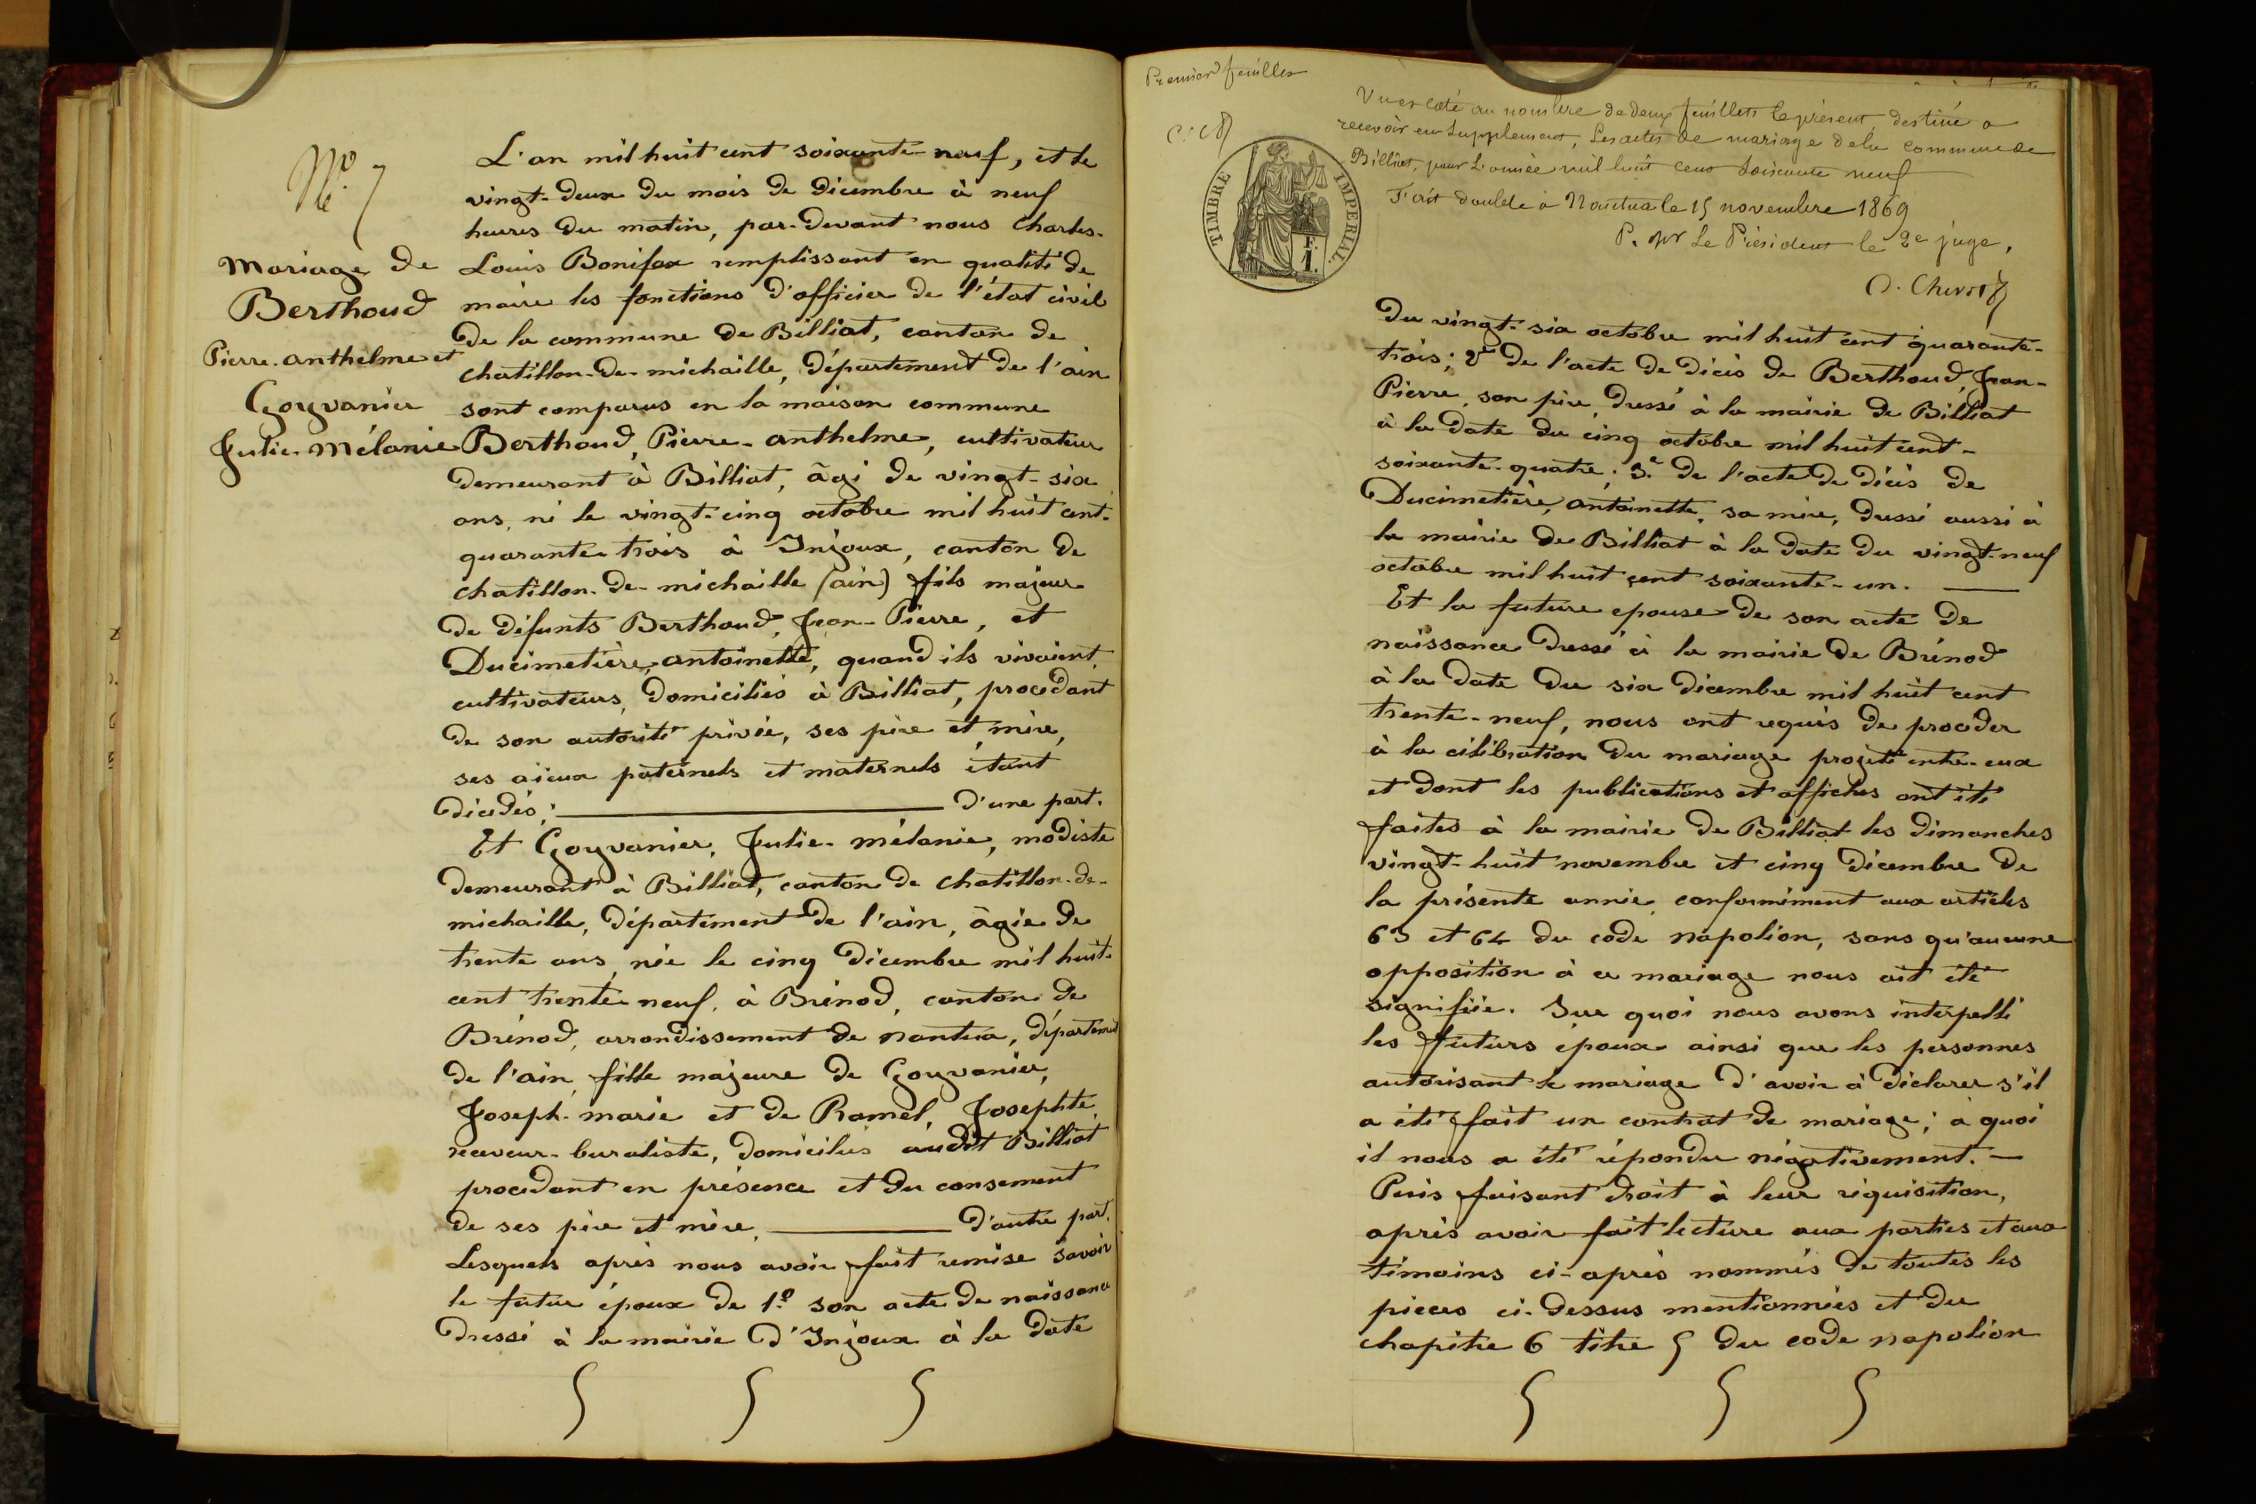 No 7
Mariage de
Berthoud
Pierre-anthelme et
Goyvanier
Julie-Mélanie
L'an mil huit cent soixante-neuf, et le
vingt-deux du mois de Décembre à neuf
heures du matin, par-devant nous Charles-
Louis Bonifax remplissant en qualité de
maire les fonctions d'officier de l'état civil
de la commune de Billiat, canton de
chatillon-de-michaille, département de l'ain
sont comparus en la maison commune
Berthoud, Pierre-anthelme, cultivateur
demeurant à Billiat, âgé de vingt-six
ans, né le vingt-cinq octobre mil huit cent-
quarante-trois à Injoux, canton de
chatillon-de-michaille (ain) fils majeur
de défunts Berthoud, Jean-Pierre, et
Ducimetière, antoinette, quand ils vivaient,
cultivateurs, domiciliés à Billiat, procédant
de son autorité privée, ses père et mère,
ses aïeux paternels et maternels étant
décédés; d'une part.
Et Goyvanier, Julie-mélanie, modiste
demeurant à Billiat, canton de chatillon-de-
michaille, département de l'ain, âgée de
trente ans, née le cinq décembre mil huit-
cent trente-neuf, à Brénod, canton de
Brénod, arrondissement de nantua, départemt
de l'ain, fille majeure de Goyvanier,
Joseph-marie et de Ramel, Josephte,
receveur-buraliste, domiciliés audit Billiat
procédant en présence et du consement
de ses père et mère, d'autre part.
Lesquels après nous avoir fait remise savoir
le futur époux de 1.o son acte de naissance
dressé à la mairie d'Injoux à la date
Premier feuillet
Vu et coté au nombre de deux feuillets le présent, destiné a
recevoir en supplement, les actes de mariage de la commune de
Billiat, pour l'année mil huit cent soixante neuf
Fait double à Nantua le 15 novembre 1869
P. Mr le Président le 2e juge,
TIMBRE IMPERIAL
F.
1.
du vingt-six octobre mil huit cent quarante-
trois; 2e de l'acte de décès de Berthoud, Jean-
Pierre, son père, dressé à la mairie de Billiat
à la date du cinq octobre mil huit cent-
soixante-quatre; 3.e de l'acte de décès de
Ducimetière, antoinette, sa mère, dressé aussi à
la mairie de Billiat à la date du vingt-neuf
octobre mil huit cent soixante-un.
Et la future epouse de son acte de
naissance dressé à la mairie de Brénod
à la date du six décembre mil huit cent
trente-neuf, nous ont requis de procéder
à la célébration du mariage projeté entre-eux
et dont les publications et affiches ont été
faites à la mairie de Billiat les dimanches
vingt-huit novembre et cinq décembre de
la présente année, conformément aux articles
63 et 64 du code napoléon, sans qu'aucune
opposition à ce mariage nous ait été
signifiée. Sur quoi nous avons interpellé
les futurs époux ainsi que les personnes
autorisant le mariage d'avoir à déclarer s'il
a été fait un contrat de mariage; à quoi
il nous a été répondu négativement.
Puis faisant droit à leur réquisition,
après avoir fait lecture aux parties et aux
témoins ci-après nommés de toutes les
pièces ci-dessus mentionnées et du
chapitre 6 titre 5 du code napoléon